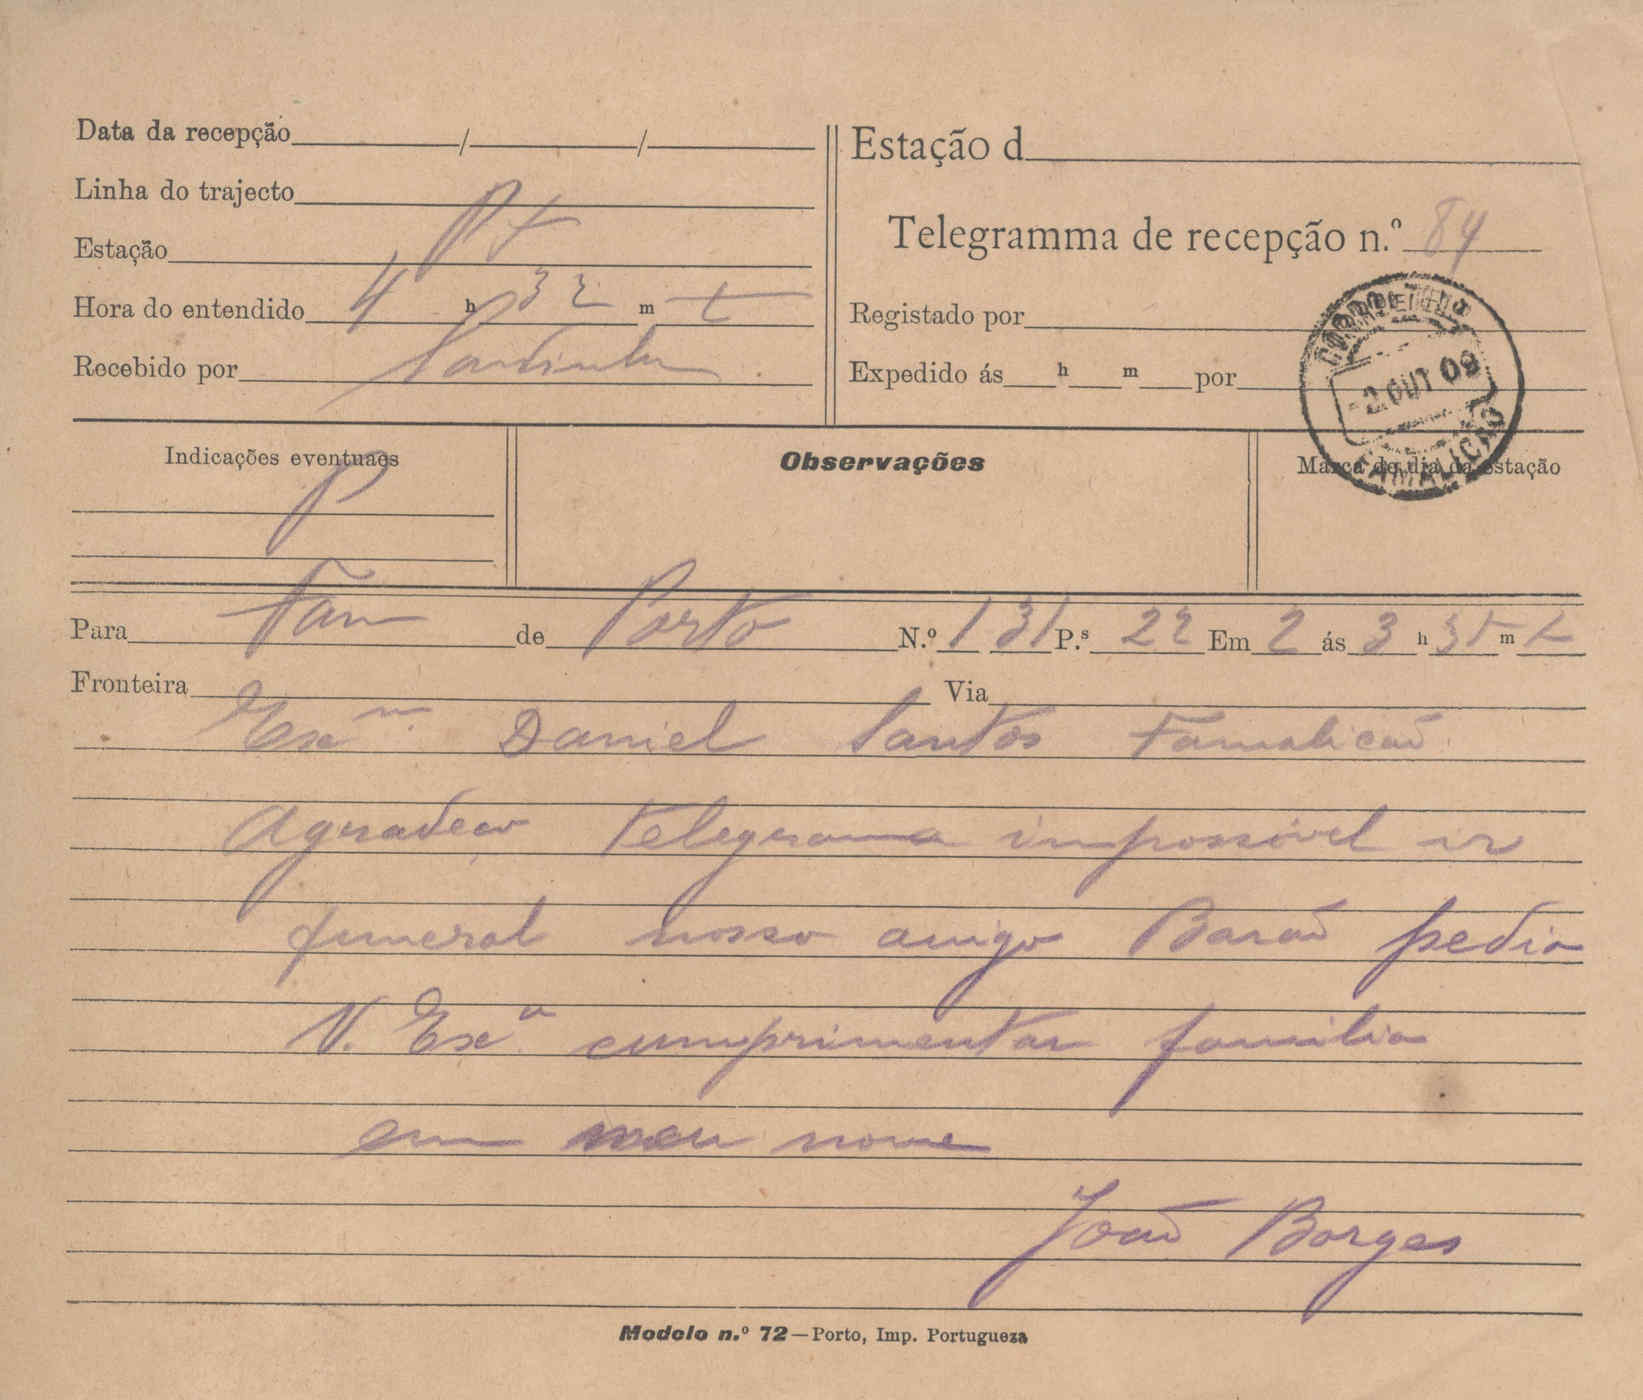 Data da recepção / /
Linha do trajecto
Estação Pt
Hora do entendido 4 h 32 m t
Recebido por
Estação d
Telegramma de recepção n.º 84
Registado por
Expedido ás h m por
2 OUT 09
FAMALICÃO
Indicações eventuaes
P
Observações
Marca de dia da estação
Para Fam de Porto N.º 131 P.s 22 Em 2 ás 3 h 35 m t
Fronteira Via
Exmo Daniel Santos Famalicão
Agradeço telegrama impossivel ir
funeral nosso amigo Barão pedia
V. Exa cumprimentar familia
em meu nome
João Borges
Modelo n.º 72—Porto, Imp. Portugueza